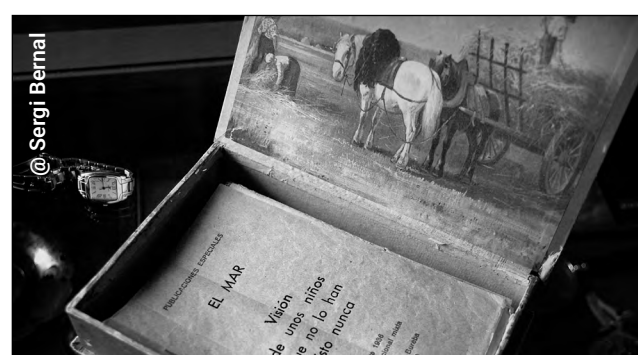 @ Sergi Bernal
PUBLICACIONES ESPECIALES
EL MAR
Visión
de unos niños
no lo han
nunca